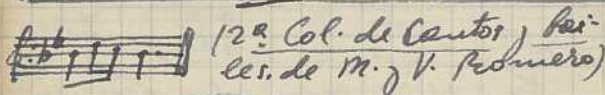 (2ª Col. de Cantos y Bai-
les. de M. y V. Romero)